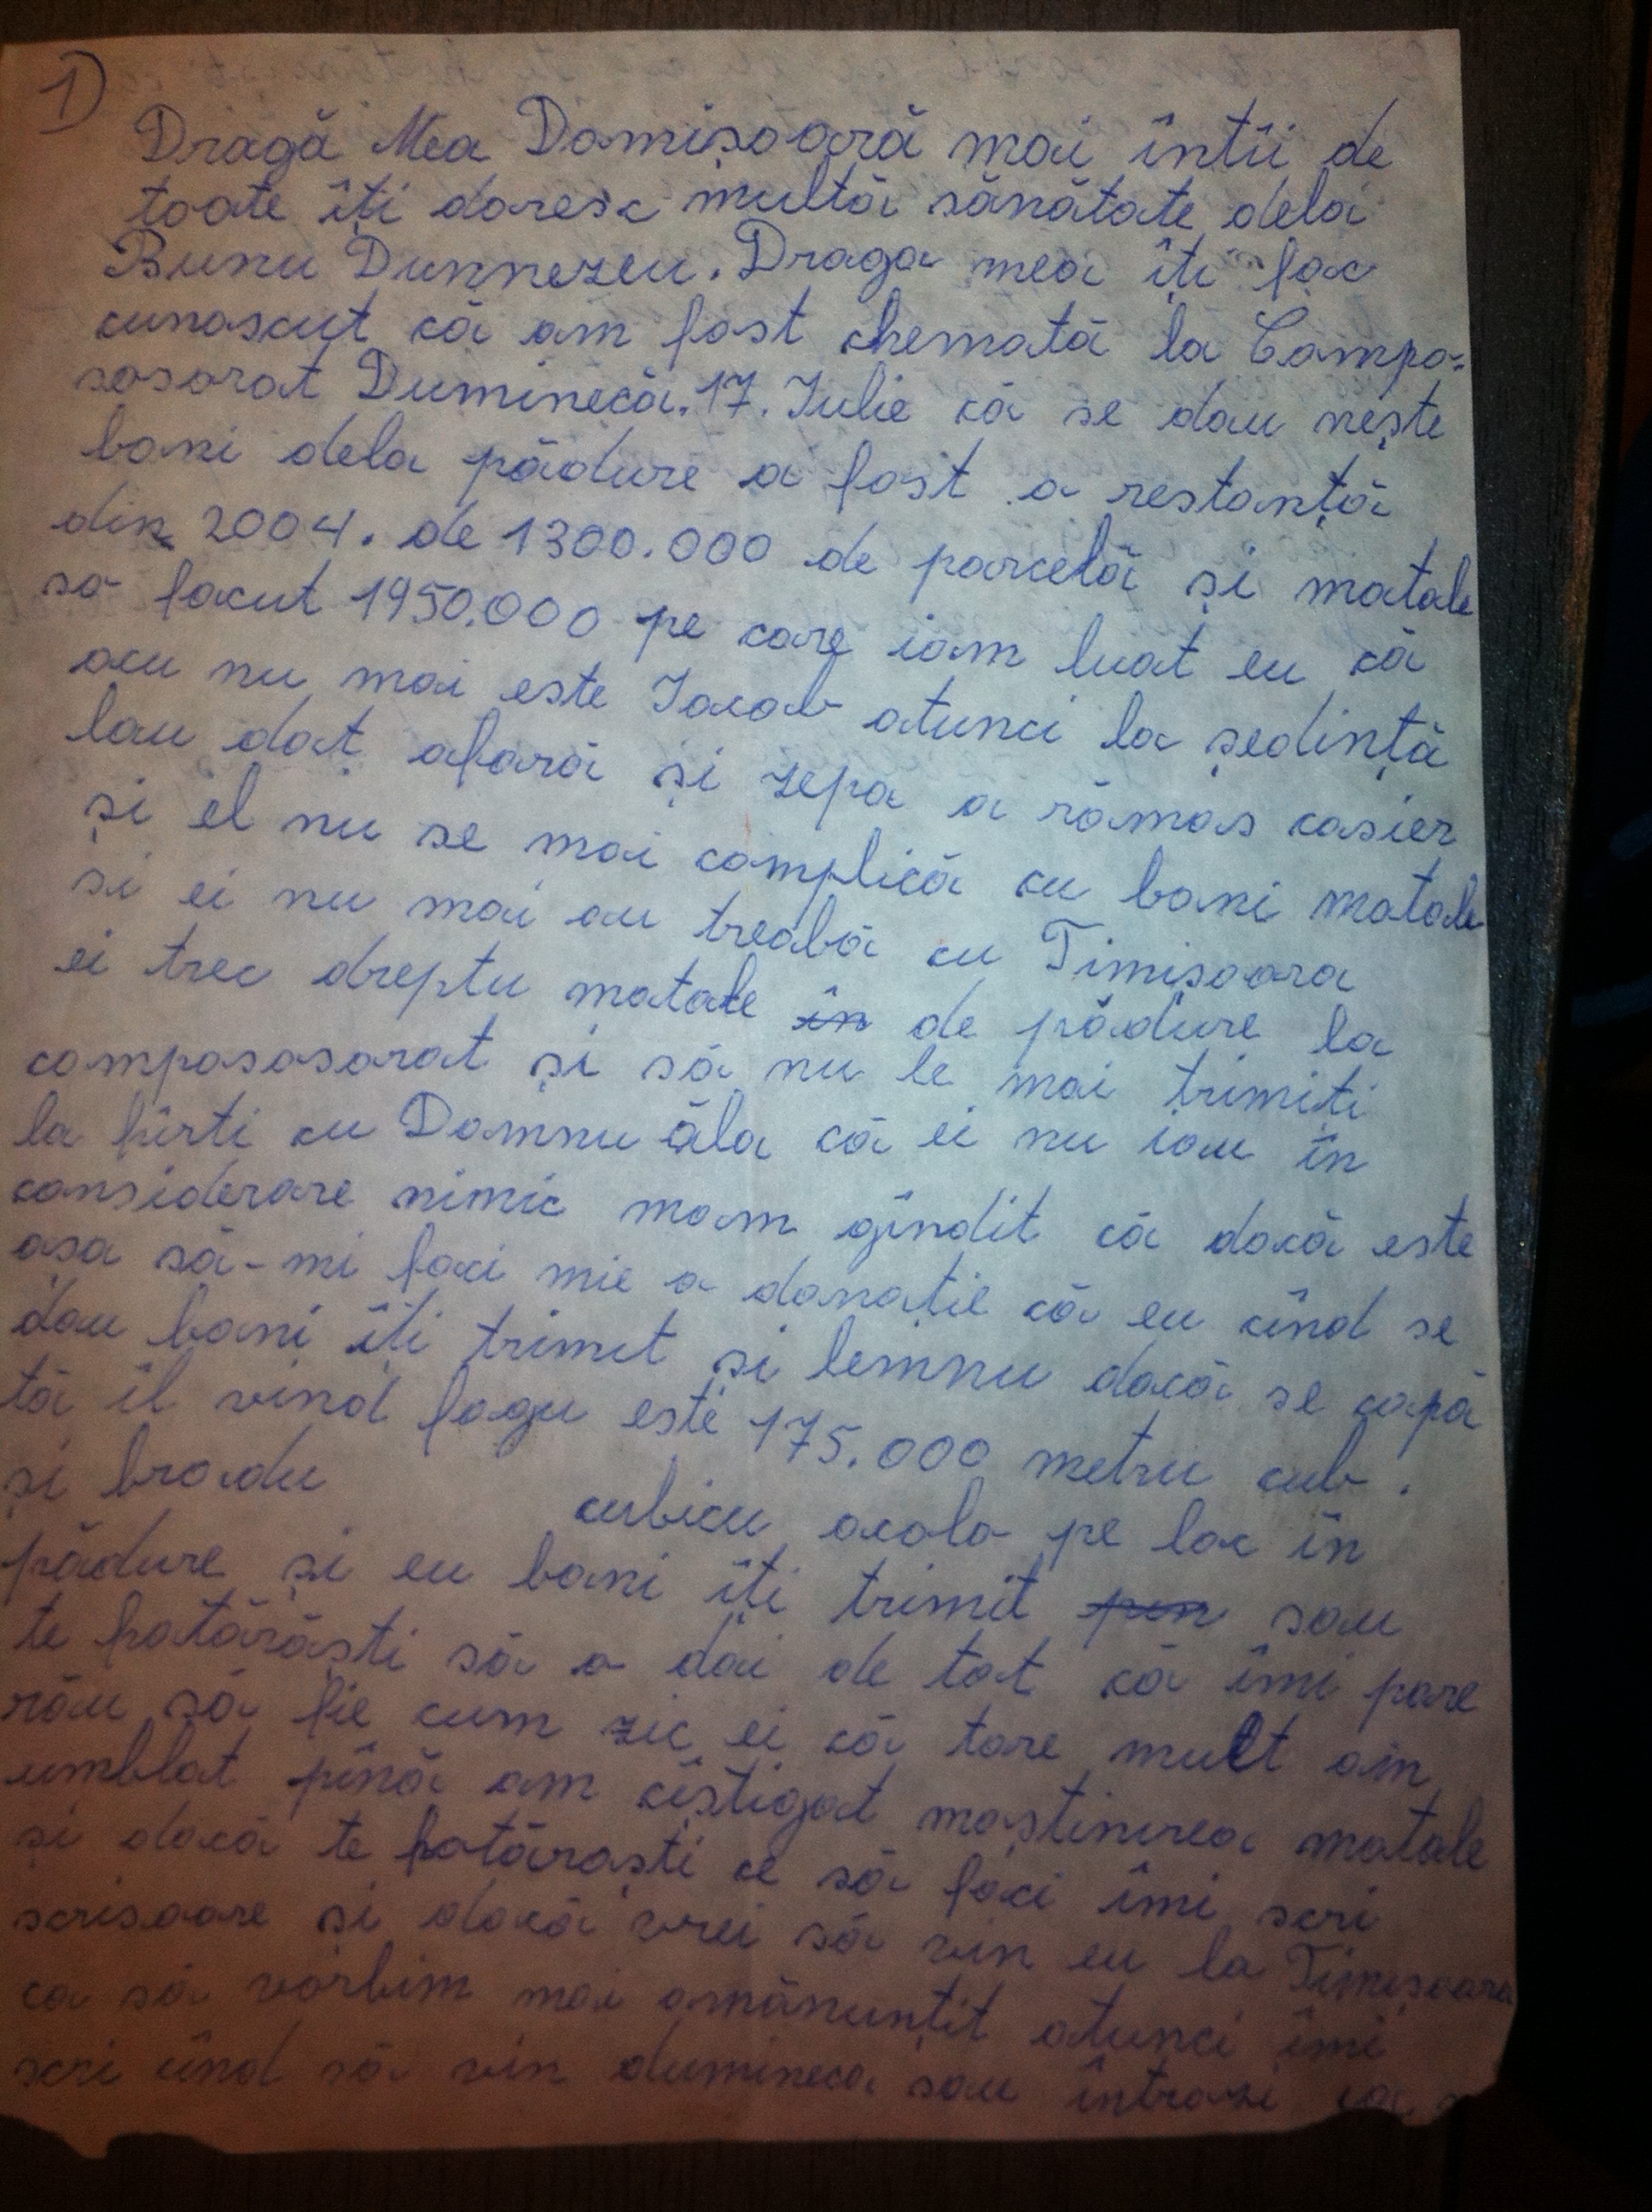 1)
Dragă Mea Domișoară mai întîi de
toate îți doresc multă sănătate dela
Bunu Dumnezeu. Draga mea îți fac
cunoscut că am fost chemată la Compo-
sosorat Duminecă. 17. Iulie că se dau nește
bani dela pădure a fost o restanță
din 2004. de 1300.000 de parcelă și matale
sa facut 1950.000 pe care iam luat eu că
acu nu mai este Iacob atunci la ședință
lau dat afară și zepa a rămas casier
și el nu se mai complică cu bani matale
si ei nu mai au treabă cu Timisoara
ei trec dreptu matale în de pădure la
compososorat și să nu le mai trimiți
la hîrti cu Domnu ăla că ei nu iau în
considerare nimic mam gîndit că dacă este
asa să-mi faci mie o donație că eu cînd se
dau bani îți trimit și lemnu dacă se capă
tă îl vind fagu este 175.000 metru cub.
și bradu cubicu acolo pe loc în
pădure și eu bani îti trimit pen sau
te hotărăști să o dai de tot că îmi pare
rău să fie cum zic ei că tare mult am
umblat pînă am cîștigat moștinirea matale
și dacă te hotărăști ce să faci îmi scri
scrisoare și dacă vrei să vin eu la Timișoara
ca să vorbim mai amănunțit atunci îmi
scri cînd să vin dumineca sau întrozi